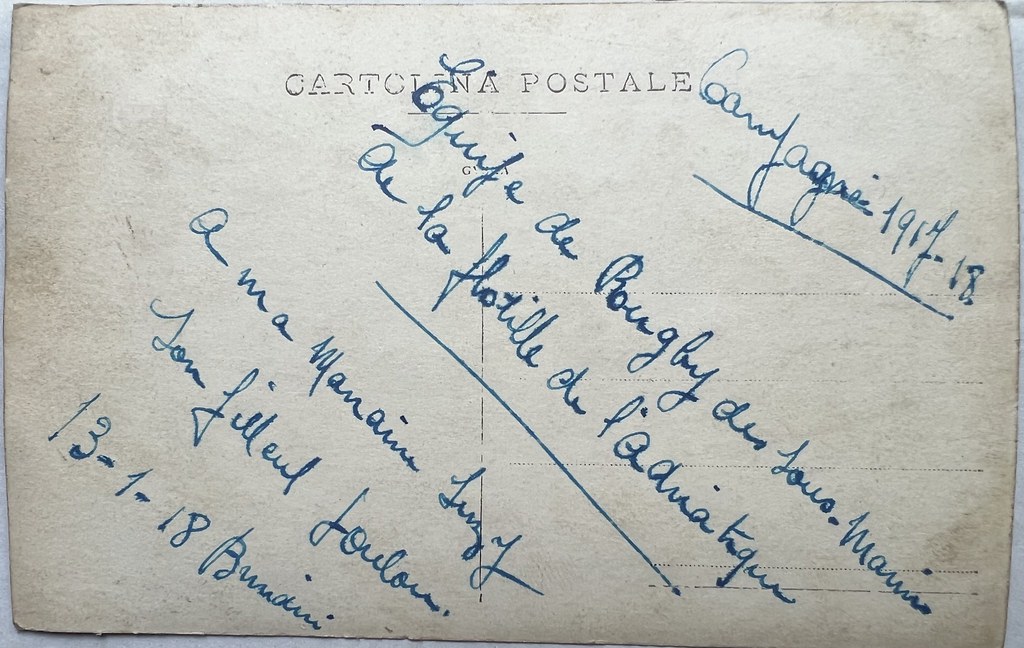 CARTOLINA POSTALE
Campagne 1917-18
Equipe de Rougby des Sous-Marins
de la flotille de l'Adriatique
a ma Marraine Suzy
Son filleul
13-1-18 Brindisi